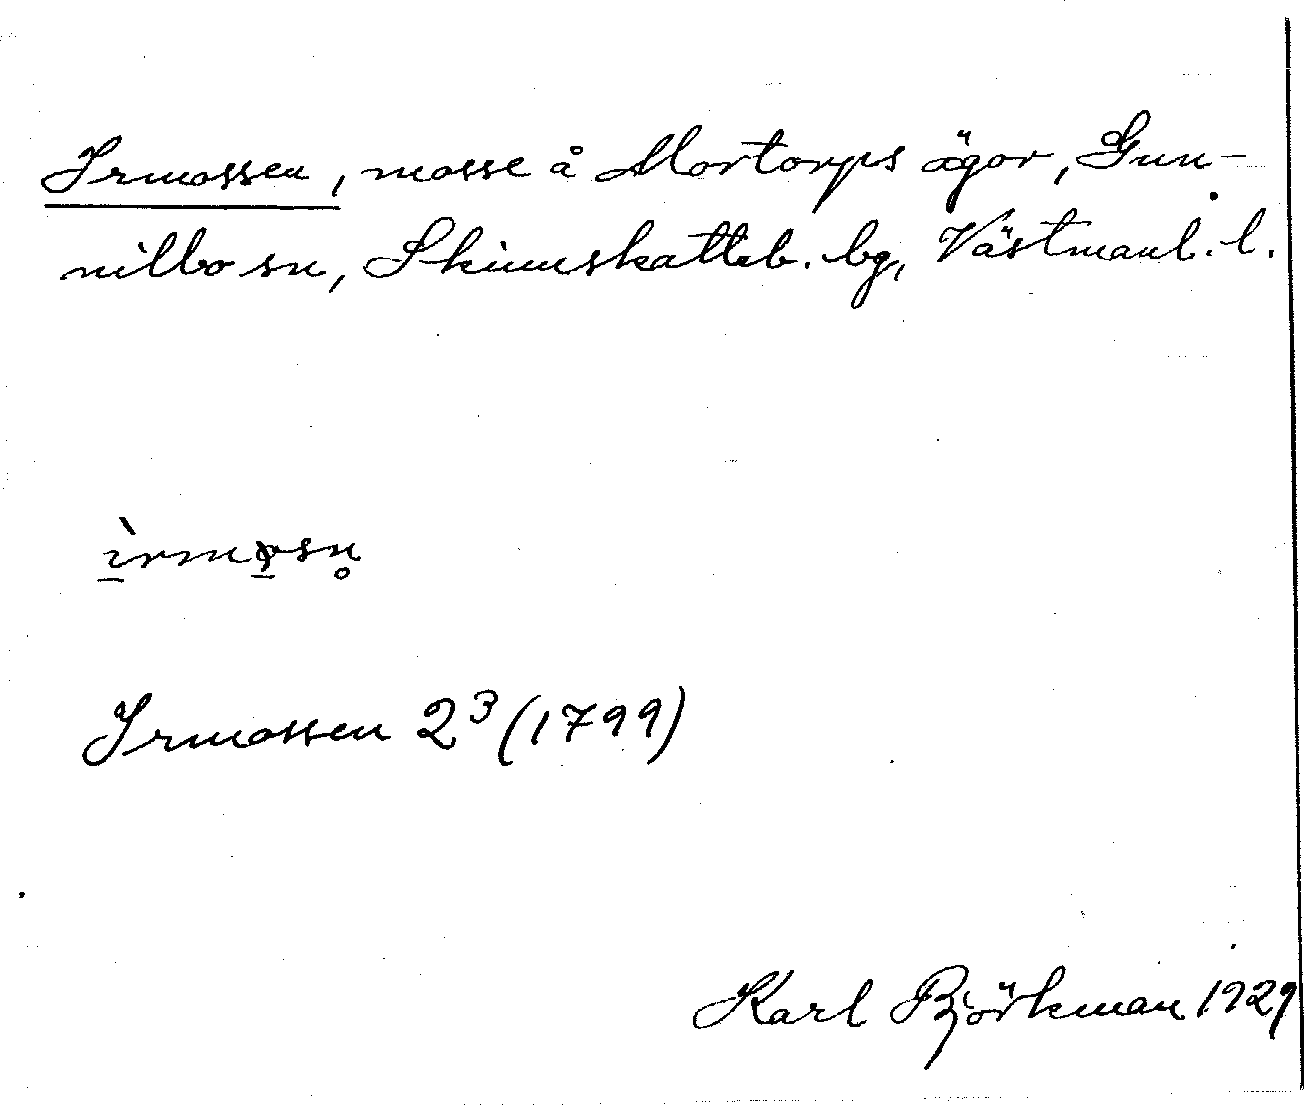 Irmossen, mosse å Mortorps ägor, Gun-
nilbo sn, Skinnskatteb. bg, Västmanl. l.
Irmossen 2³ (1799)
Karl Björkman 1929